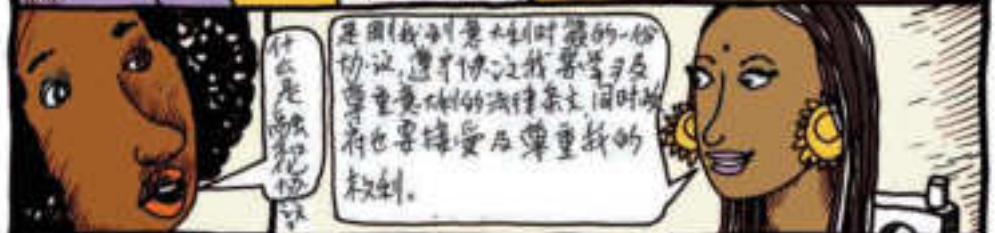 什么是融和化协议。
是刚我到意大利时签的一份
协议，这个协议我要学习及
尊重意大利的法律条文，同时政
府也要接受及尊重我的
权利。